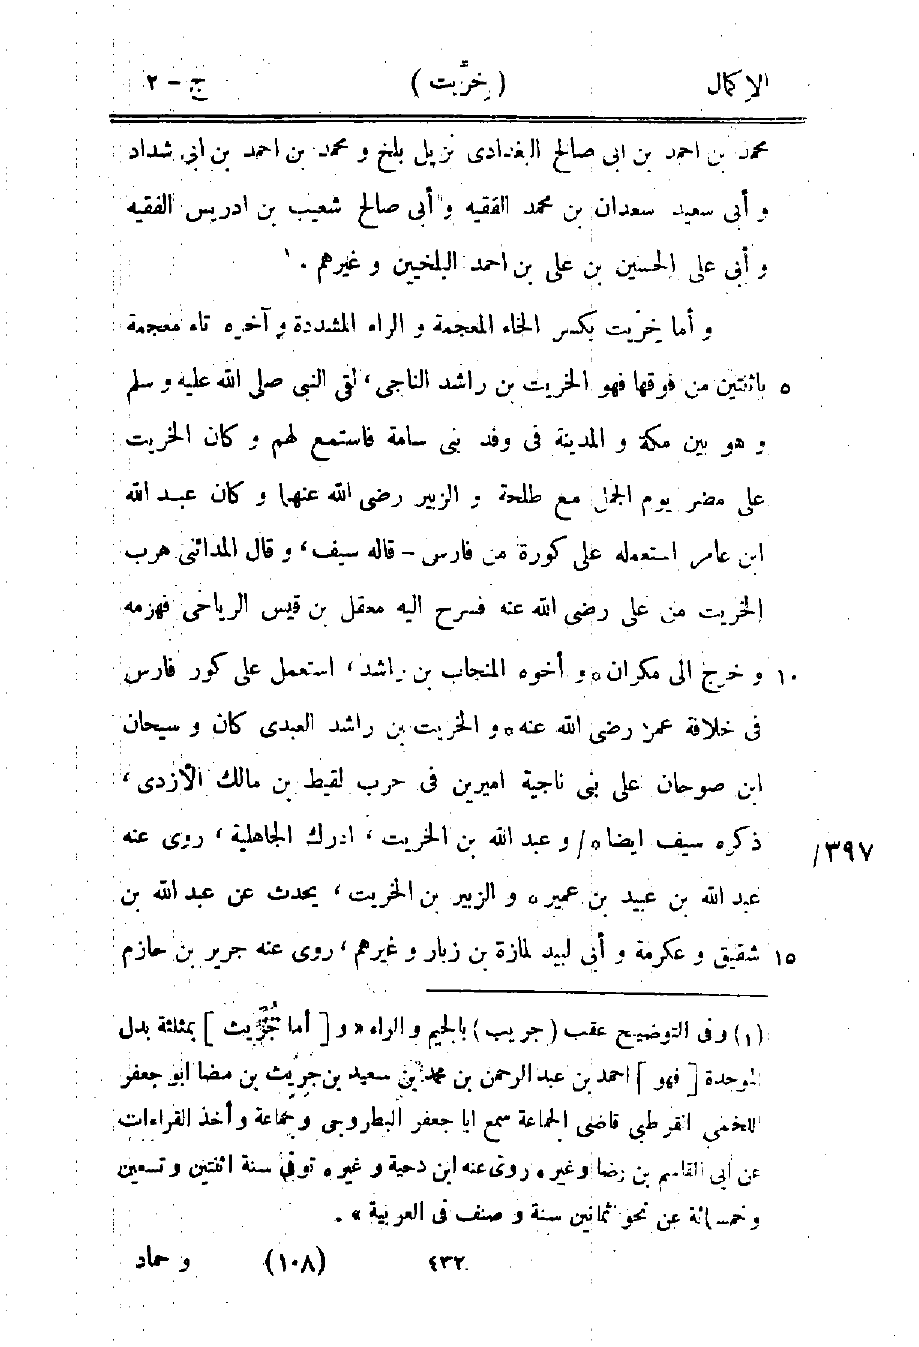 الإكمال ( خِرِّيت ) ج - ٢
محمد بن احمد بن ابى صالح البغدادى نزيل بلخ و محمد بن احمد بن ابى شداد
و أبى سعيد سعدان بن محمد الفقيه و أبى صالح شعيب بن ادريس الفقيه
و أبى على الحسين بن على بن احمد البلخيين و غيرهم . ١
و أما خرّيت بكسر الخاء المعجمة و الراء المشددة و آخره تاء معجمة
٥ باثنتين من فوقها فهو الخريت بن راشد الناجى، لقى النبى صلى الله عليه و سلم
و هو بين مكة و المدينة فى وفد بنى سامة فاستمع لهم و كان الخريت
على مضر يوم الجمل مع طلحة و الزبير رضى الله عنهما و كان عبد الله
ابن عامر استعمله على كورة من فارس - قاله سيف، و قال المدائنى هرب
الخريت من على رضى الله عنه فسرح اليه معقل بن قيس الرياحى فهزمه
١٠ و خرج الى مكران ه و أخوه المنجاب بن راشد، استعمل على كور فارس
فى خلافة عمر رضى الله عنه ه و الخريت بن راشد العبدى كان و سيحان
ابن صوحان على بنى ناجية اميرين فى حرب لقيط بن مالك الأزدى،
٣٩٧/ ذكره سيف ايضا ه/ و عبد الله بن الخريت، ادرك الجاهلية، روى عنه
عبد الله بن عبيد بن عمير ه و الزبير بن الخريت، يحدث عن عبد الله بن
١٥ شقيق و عكرمة و أبى لبيد لمازة بن زبار و غيرهم، روى عنه جرير بن حازم
(١) و فى التوضيح عقب (جريب) بالجيم و الراء « و [ أما جُرَيث ] بمثلثة بدل
الموحدة [ فهو ] احمد بن عبد الرحمن بن محمد بن سعيد بن جريث بن مضا ابو جعفر
اللخمى القرطبى قاضى الجماعة سمع ابا جعفر البطروجى و جماعة و أخذ القراءات
عن أبى القاسم بن رضا و غيره روى عنه ابن دحية و غيره توفى سنة اثنتين و تسعين
و خمسمائة عن نحو ثمانين سنة و صنف فى العربية » .
٤٣٢ (١٠٨) و حماد